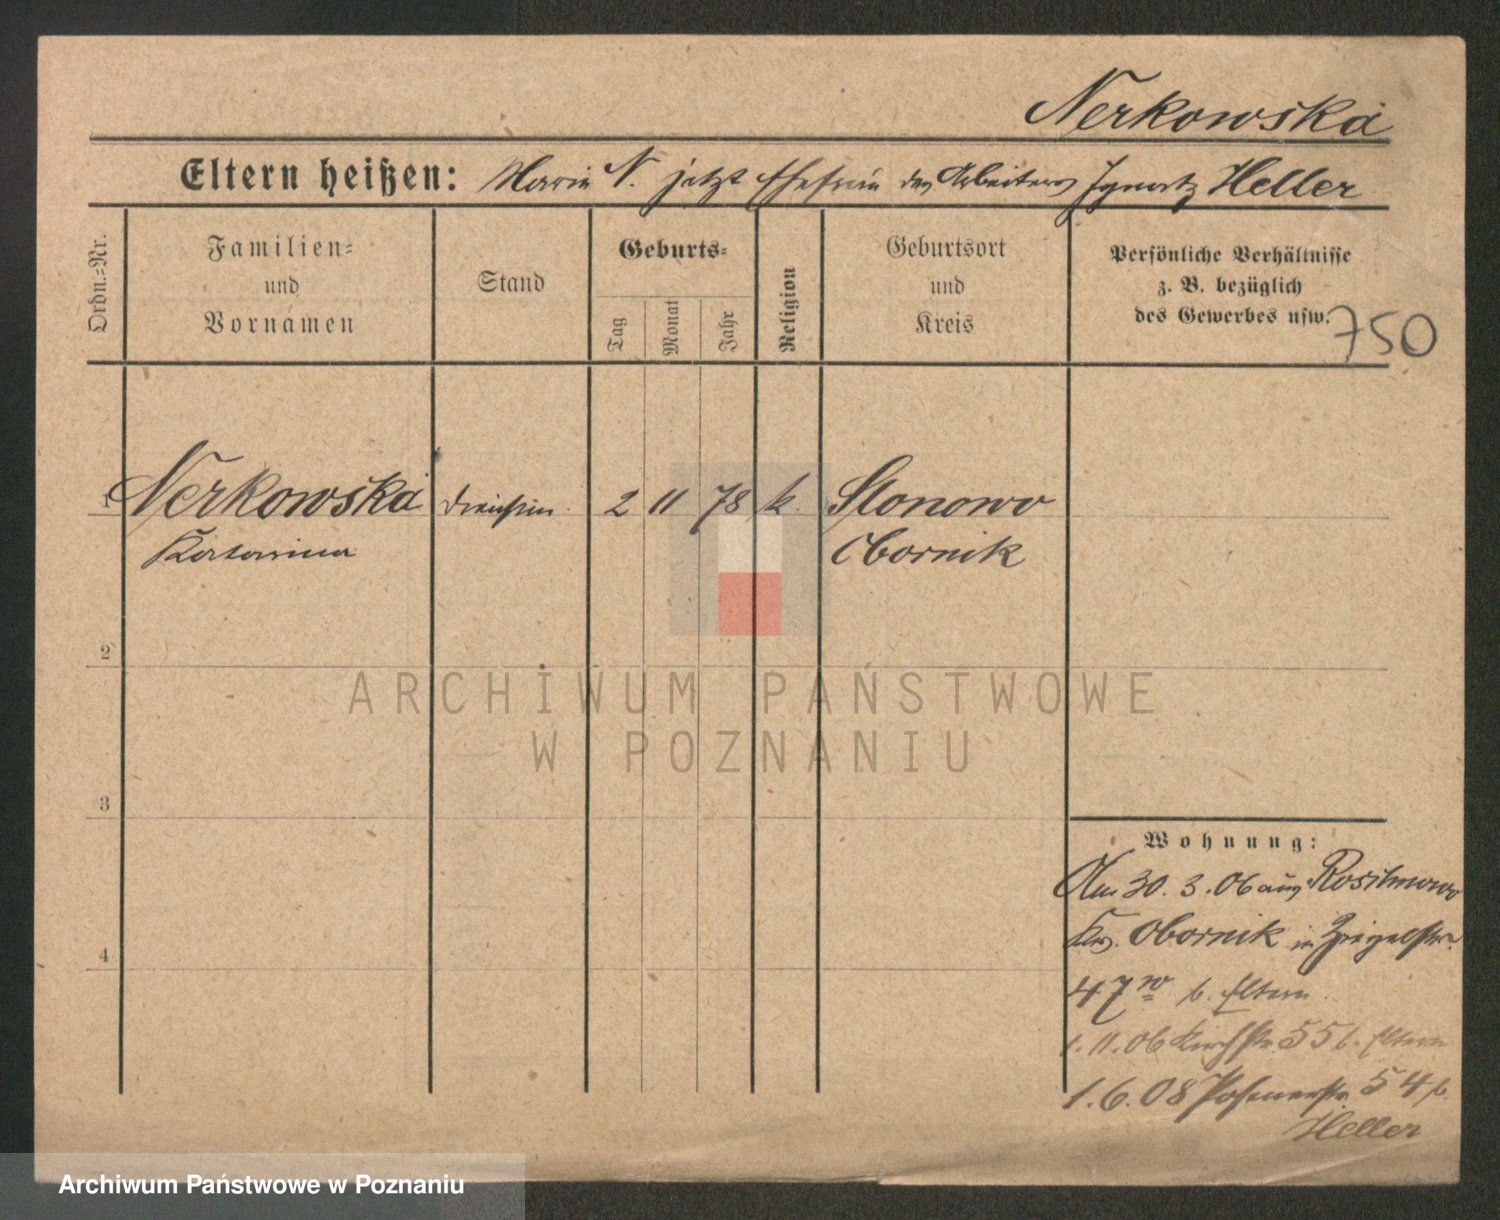 Nerkowska
Eltern heißen: Marie N. jetzt Ehefrau des Arbeiters Ignatz Heller
Ordn.=Nr.
Familien=
und
Vornamen
Stand
Geburts=
Tag
Monat
Jahr
Religion
Geburtsort
und
Kreis
Persönliche Verhältnisse
z. B. bezüglich
des Gewerbes usw.
750
1 Nerkowska 2 11 78 k. Slonowo
Katarina Obornik
2
ARCHIWUM PAŃSTWOWE
W POZNANIU
3
4
Wohnung:
Am 30. 3. 06 aus
Krs. Obornik in Ziegelstr.
47 b. Eltern.
1. 11. 06 Kirchstr. 55 b. Eltern
1. 6. 08 Posenerstr. 54 b.
Heller
Archiwum Państwowe w Poznaniu